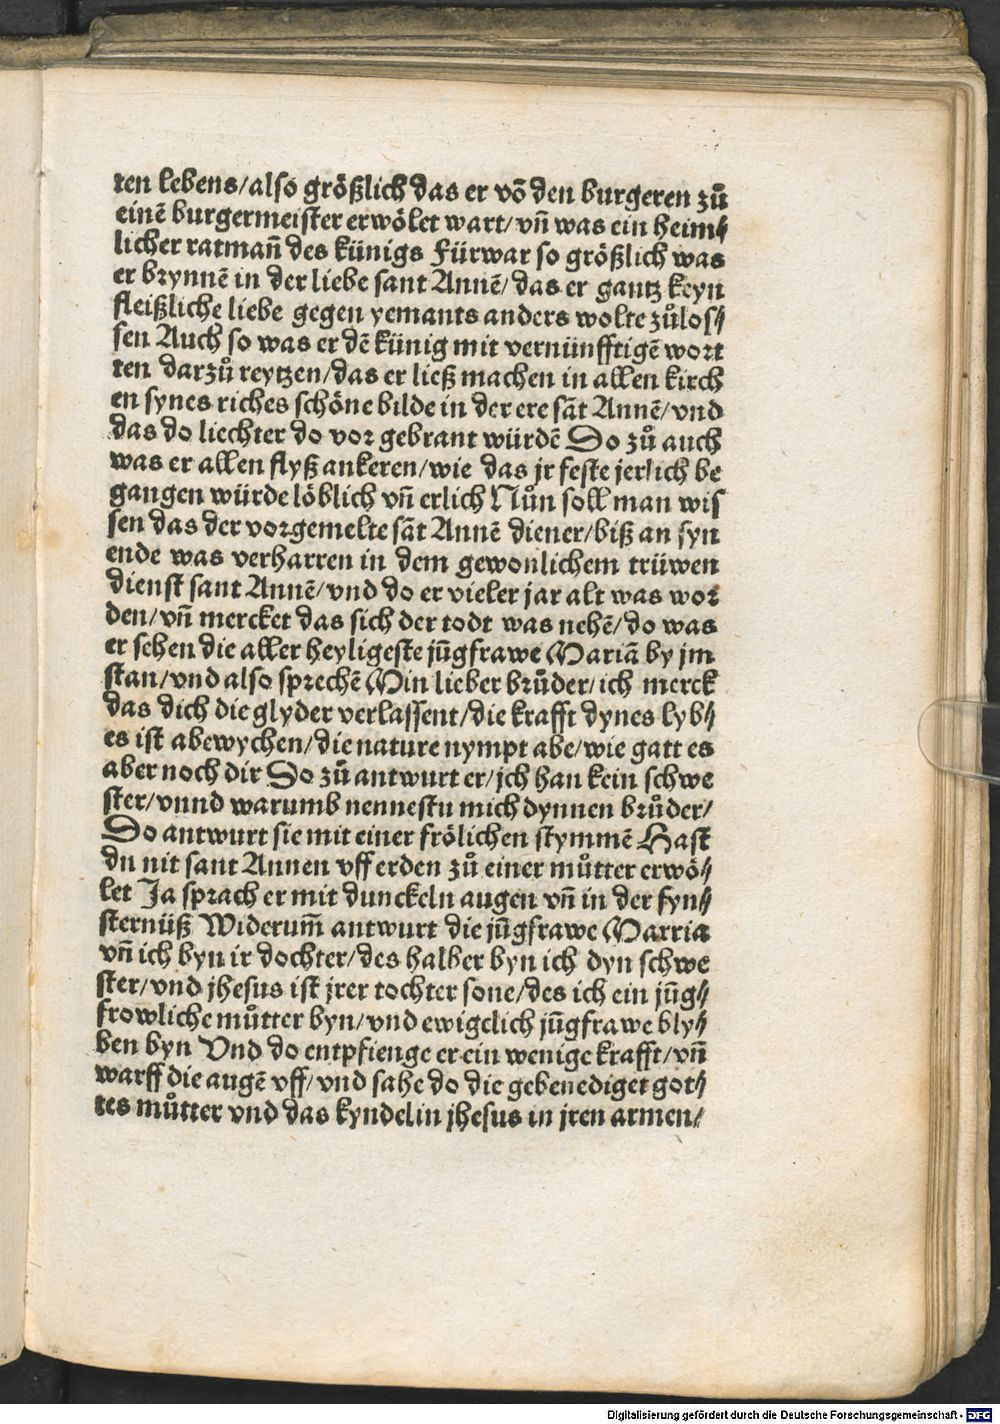 ten lebens/also größlich das er võ den burgeren zů
einẽ burgermeister erwölet wart/vñ was ein heim⸗
licher ratmañ des künigs Fürwar so größlich was
er brynnẽ in der liebe sant Annẽ/das er gantz keyn
fleißliche liebe gegen yemants anders wolte zůlos⸗
sen Auch so was er dẽ künig mit vernünfftigẽ wort
ten darzů reytzen/das er ließ machen in allen kirch
en synes riches schöne bilde in der ere sãt Annẽ/vnd
das do liechter do vor gebrant würdẽ So zů auch
was er allen flyß ankeren/wie das jr feste jerlich be
gangen würde löblich vñ erlich Nůn soll man wis
sen das der vorgemelte sãt Annẽ diener/biß an syn
ende was verharren in dem gewonlichem trüwen
dienst sant Annẽ/vnd do er vieler jar alt was wor
den/vñ mercket das sich der todt was nehẽ/do was
er sehen die aller heyligeste jũgfrawe Mariã by jm
stan/vnd also sprechẽ Min lieber brůder/ich merck
das dich die glyder verlassent/die krafft dynes lyb⸗
es ist abewychen/die nature nympt abe/wie gatt es
aber noch dir So zů antwurt er/jch han kein schwe
ster/vnnd warumb nennestu mich dynnen brůder/
Do antwurt sie mit einer frölichen stymmẽ Hast
du nit sant Annen vff erden zů einer můtter erwö⸗
let Ja sprach er mit dunckeln augen vñ in der fyn⸗
sternüß Widerum̃ antwurt die jũgfrawe Marria
vñ ich byn ir dochter/des halber byn ich dyn schwe
ster/vnd jhesus ist jrer tochter sone/des ich ein jũg⸗
frowliche můtter byn/vnd ewigclich jũgfrawe bly⸗
ben byn Vnd do entpfienge er ein wenige krafft/vñ
warff die augẽ vff/vnd sahe do die gebenediget got⸗
tes můtter vnd das kyndelin jhesus in jren armen/
Digitalisierung gefördert durch die Deutsche Forschungsgemeinschaft - DFG